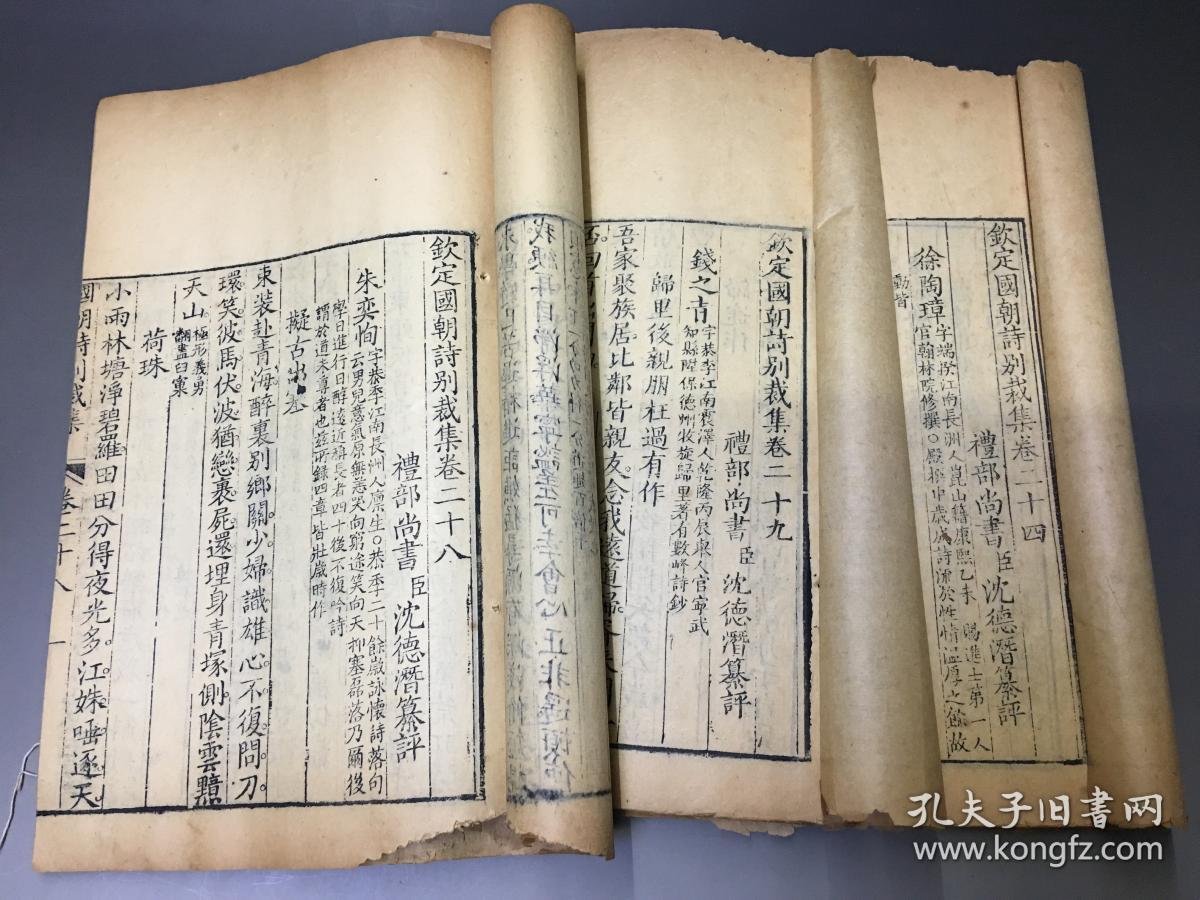 欽定國朝詩別裁集卷二十四
禮部尚書臣沈德潛纂評
徐陶璋字端揆江南長洲人崑山籍康熙乙未賜進士第一人
官翰林院修撰○殿撰中歲成詩深於性情温厚之餘故
動皆
欽定國朝詩别裁集卷二十九
禮部尚書臣沈德潛纂評
錢之青字恭李江南震澤人乾隆丙辰舉人官寧武
知縣陞保德州牧旋歸里著有數峰詩鈔
歸里後親朋枉過有作
吾家聚族居比鄰皆親友念我
欽定國朝詩别裁集卷二十八
禮部尚書臣沈德潛纂評
朱奕恂字恭季江南長洲人廪生○恭季二十餘歲詠懷詩落句
云男兒意氣原無憑哭向窮途笑向天抑塞磊落乃爾後
學日進行日醇遠近稱長者四十後不復吟詩
謂於道未尊者也兹所錄四章皆壯歲時作
擬古出塞
束装赴青海醉裏别鄉關少婦識雄心不復問刀
環笑彼馬伏波猶戀裹屍還埋身青塚側陰雲黯
天山極形義勇
翻盡臼窠
荷珠
小雨林塘淨碧羅田田分得夜光多江姝唾逐天
國朝詩别裁集 卷二十八 一
孔夫子旧書网
www.kongfz.com